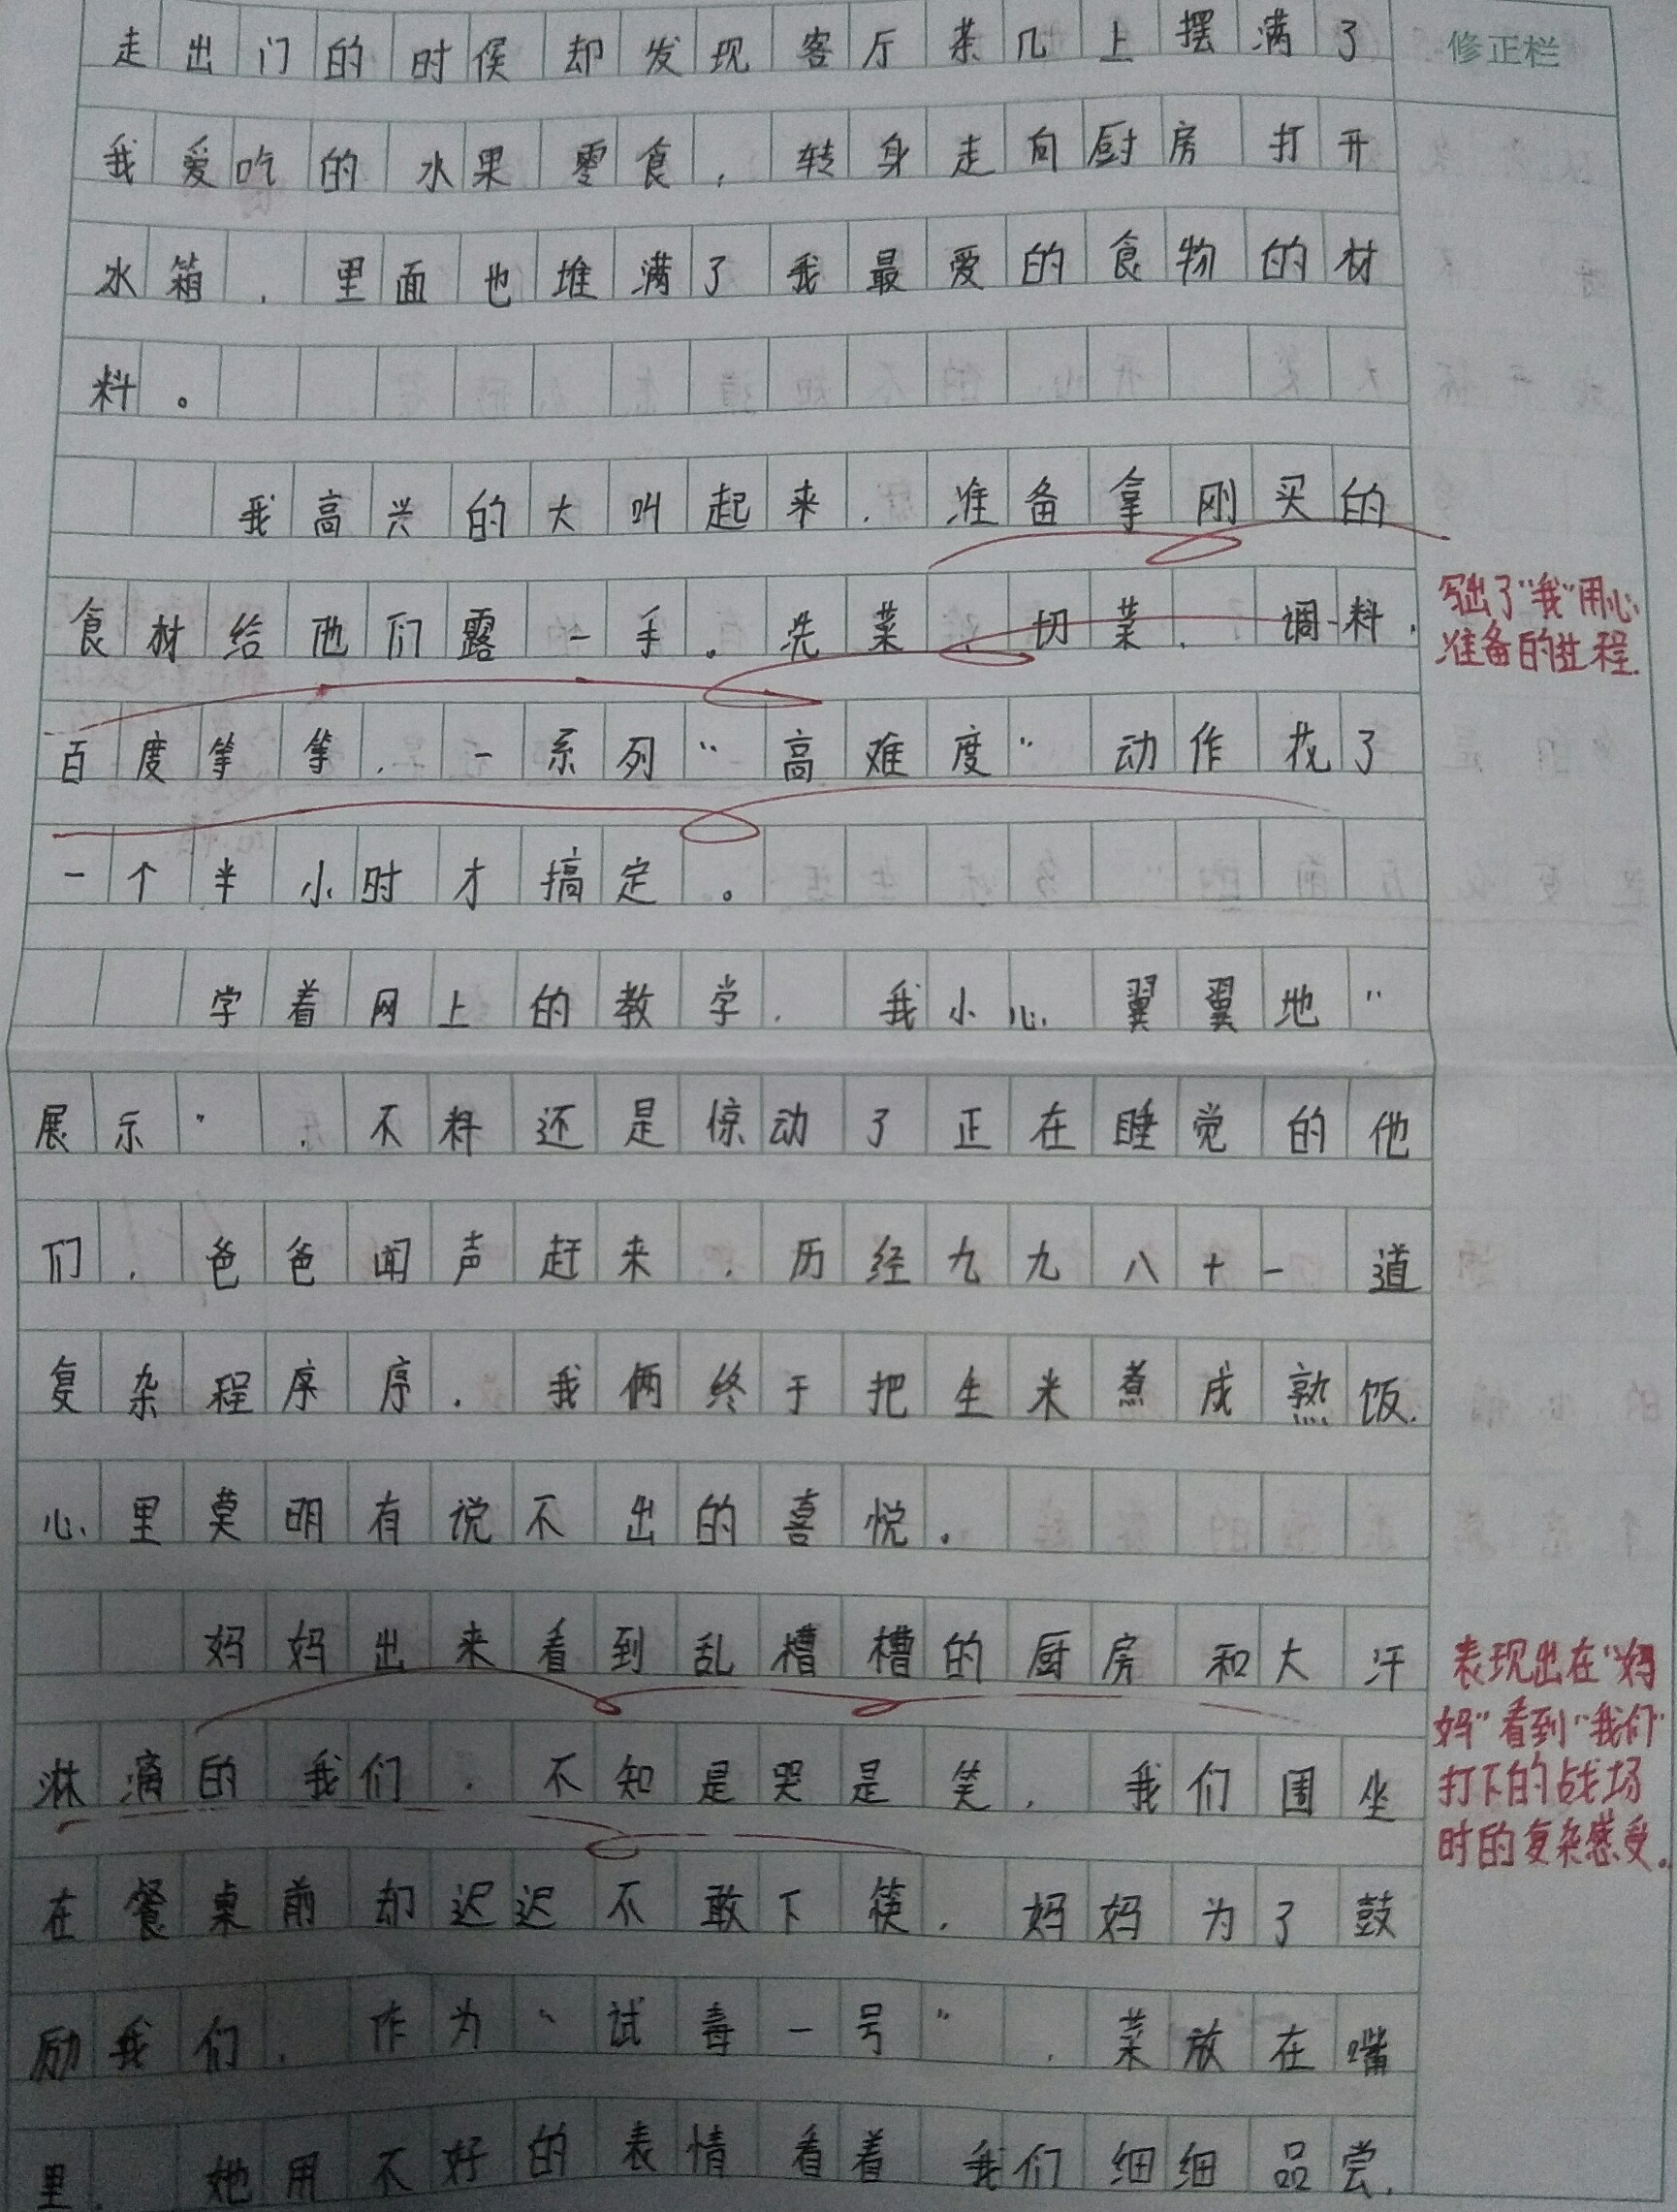 走出门的时侯却发现客厅茶几上摆满了
修正栏
我爱吃的水果零食，转身走向厨房打开
水箱，里面也堆满了我最爱的食物的材
料。
我高兴的大叫起来，准备拿刚买的
食材给他们露一手。洗菜、切菜、调料、
写出了“我”用心
准备的过程.
百度等等，一系列“高难度”动作找了
一个半小时才搞定。
学着网上的教学，我小心翼翼地“
展示”，不料还是惊动了正在睡觉的他
们，爸爸闻声赶来，历经九九八十一道
复杂程序序，我俩终于把生米煮成熟饭，
心里莫明有说不出的喜悦。
妈妈出来看到乱糟糟的厨房和大汗
淋漓的我们，不知是哭是笑，我们围坐
表现出在“妈
妈”看到“我们”
打下的战场
时的复杂感受。
在餐桌前却迟迟不敢下筷，妈妈为了鼓
励我们，作为“试毒一号”，菜放在嘴
里，她用不好的表情看着我们细细品尝，